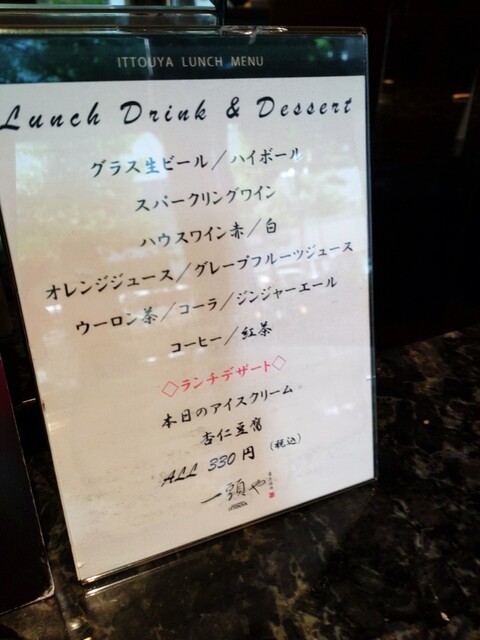 ITTOUYA LUNCH MENU
Lunch Drink & Dessert
グラス生ビール／ハイボール
スパークリングワイン
ハウスワイン赤／白
オレンジジュース／グレープフルーツジュース
ウーロン茶／コーラ／ジンジャーエール
コーヒー／紅茶
◇ランチデザート◇
本日のアイスクリーム
杏仁豆腐
ALL 330円（税込）
一頭や